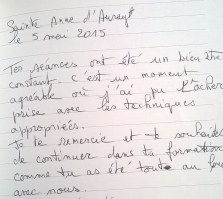 Sainte Anne d'Auray
le 5 mai 2015
Tes séances ont été un bien être
constant. c'est un moment
agréable où j'ai pu lâcher
prise avec les techniques
appropriées.
Je te remercie et te souhaite
de continuer dans ta formation
comme tu as été tout au
avec nous.